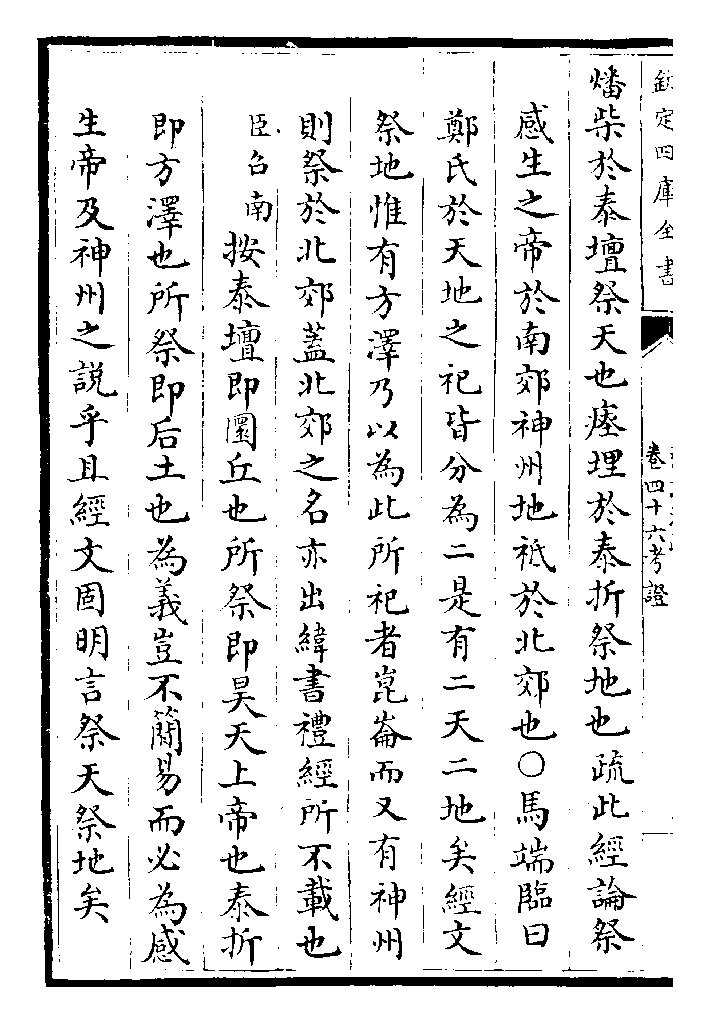 欽定四庫全書
卷四十六考證
燔柴於泰壇祭天也瘞埋於泰折祭地也疏此經論祭
感生之帝於南郊神州地祗於北郊也○馬端臨曰
鄭氏於天地之祀皆分為二是有二天二地矣經文
祭地惟有方澤乃以為此所祀者崑崙而又有神州
則祭於北郊蓋北郊之名亦出緯書禮經所不載也
臣召南按泰壇即圜丘也所祭即昊天上帝也泰折
即方澤也所祭即后土也為義豈不簡易而必為感
生帝及神州之說乎且經文固明言祭天祭地矣